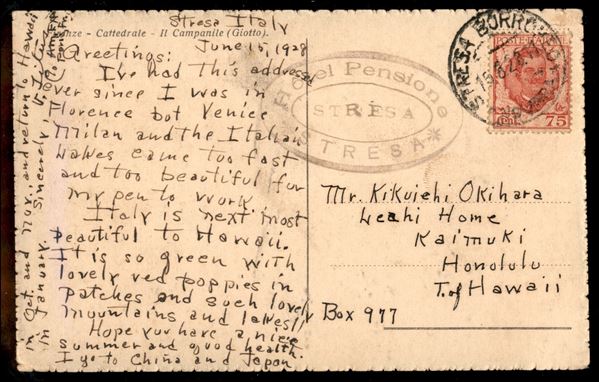 Stresa Italy
Firenze - Cattedrale - Il Campanile (Giotto).
June 15, 1928
Greetings:
I've had this addressed
ever since I was in
Florence but Venice
Milan and the Italian
Lakes came too fast
and too beautiful for
my pen to work.
Italy is next most
beautiful to Hawaii.
It is so green with
lovely red poppies in
patches and such lovely
mountains and lakes!!
Hope you have a nice
summer and good health.
I go to China and Japan
in Oct. and Nov. and return to Hawaii
in January. Sincerely,
Hotel Pensione
STRESA
STRESA
STRESA BORROMEO
15.6.28
POSTE ITALIANE
Cent. 75
Mr. Kikuichi Okihara
Leahi Home
Kaimuki
Honolulu
T. of Hawaii
Box 977